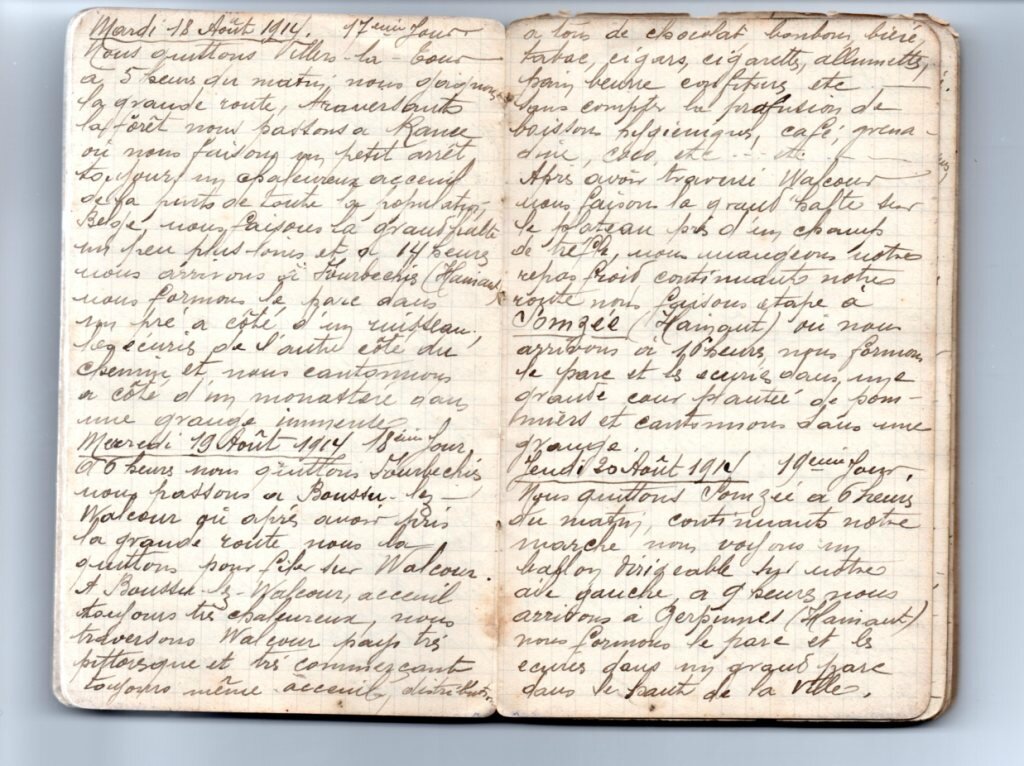 Mardi 18 Août 1914. 17ème Jour
Nous quittons Villers-la-Tour
a 5 heurs du matin, nous gagnons
la grande route, traversants
la fôrêt nous passons a Rance
où nous faisons un petit arrêt
toujours un chaleureux acceuil
de la part de toute la population
Belge, nous faisons la grand halte
un peu plus loins et a 14 heures
nous arrivons à Fourbechis (Hainaut)
nous formons le parc dans
un pré a côté d'un ruisseau,
les écuries de l'autre côté du
chemin et nous cantonnons
a côté d'un monastère dans
une grange immense
Mercredi 19 Août 1914 18ème Jour
a 6 heurs nous quittons Fourbechis
nous passons a Boussu-lez-
Walcour où après avoir pris
la grande route nous la
quittons pour filer sur Walcour.
A Boussu-lez-Walcour, acceuil
toujours très chaleureux, nous
traversons Walcour pays très
pittoresque et très commerçant
toujours même acceuil, distribution
a tous de chocolat bonbons, bière,
tabac, cigars, cigarettes, allumettes,
pain beurre confitures etc —
sans compter la profusion de
boisson hygieniques, café, grena-
dine, coco, etc --- etc. —
Après avoir traversé Walcour
nous faisons la grand halte sur
le plateau près d'un champ
de trèfle, nous mangeons notre
repas froid continuant notre
route nous faisons etape à
Somzée (Hainaut) où nous
arrivons à 16 heurs, nous formons
le parc et les ecuries dans une
grande cour plantée de pom-
miers et cantonnons dans une
grange.
Jeudi 20 Août 1914 19ème Jour.
Nous quittons Somzée a 6 heurs
du matin, continuant notre
marche nous voyons un
ballon dirigeable sur notre
aile gauche, a 9 heurs nous
arrivons à Gerpinnes (Hainaut)
nous formons le parc et les
ecuries dans un grand parc
dans le haut de la ville.